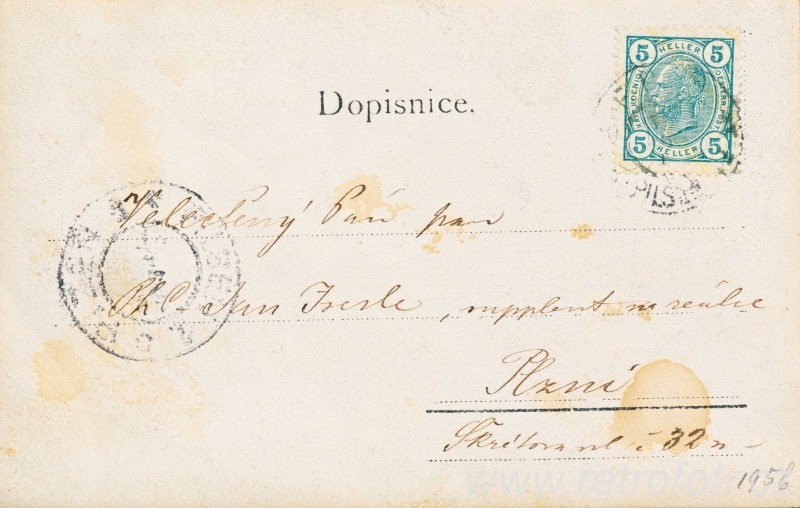 5 HELLER 5
KAIS. KOENIGL. OESTERR. POST
5 HELLER 5
Dopisnice.
PILSEN
Velectěný Pán pan
PhC. Jan , supplent na reálce
Plzni
Škrétova ul č 32 n
1956
www.retrofoto